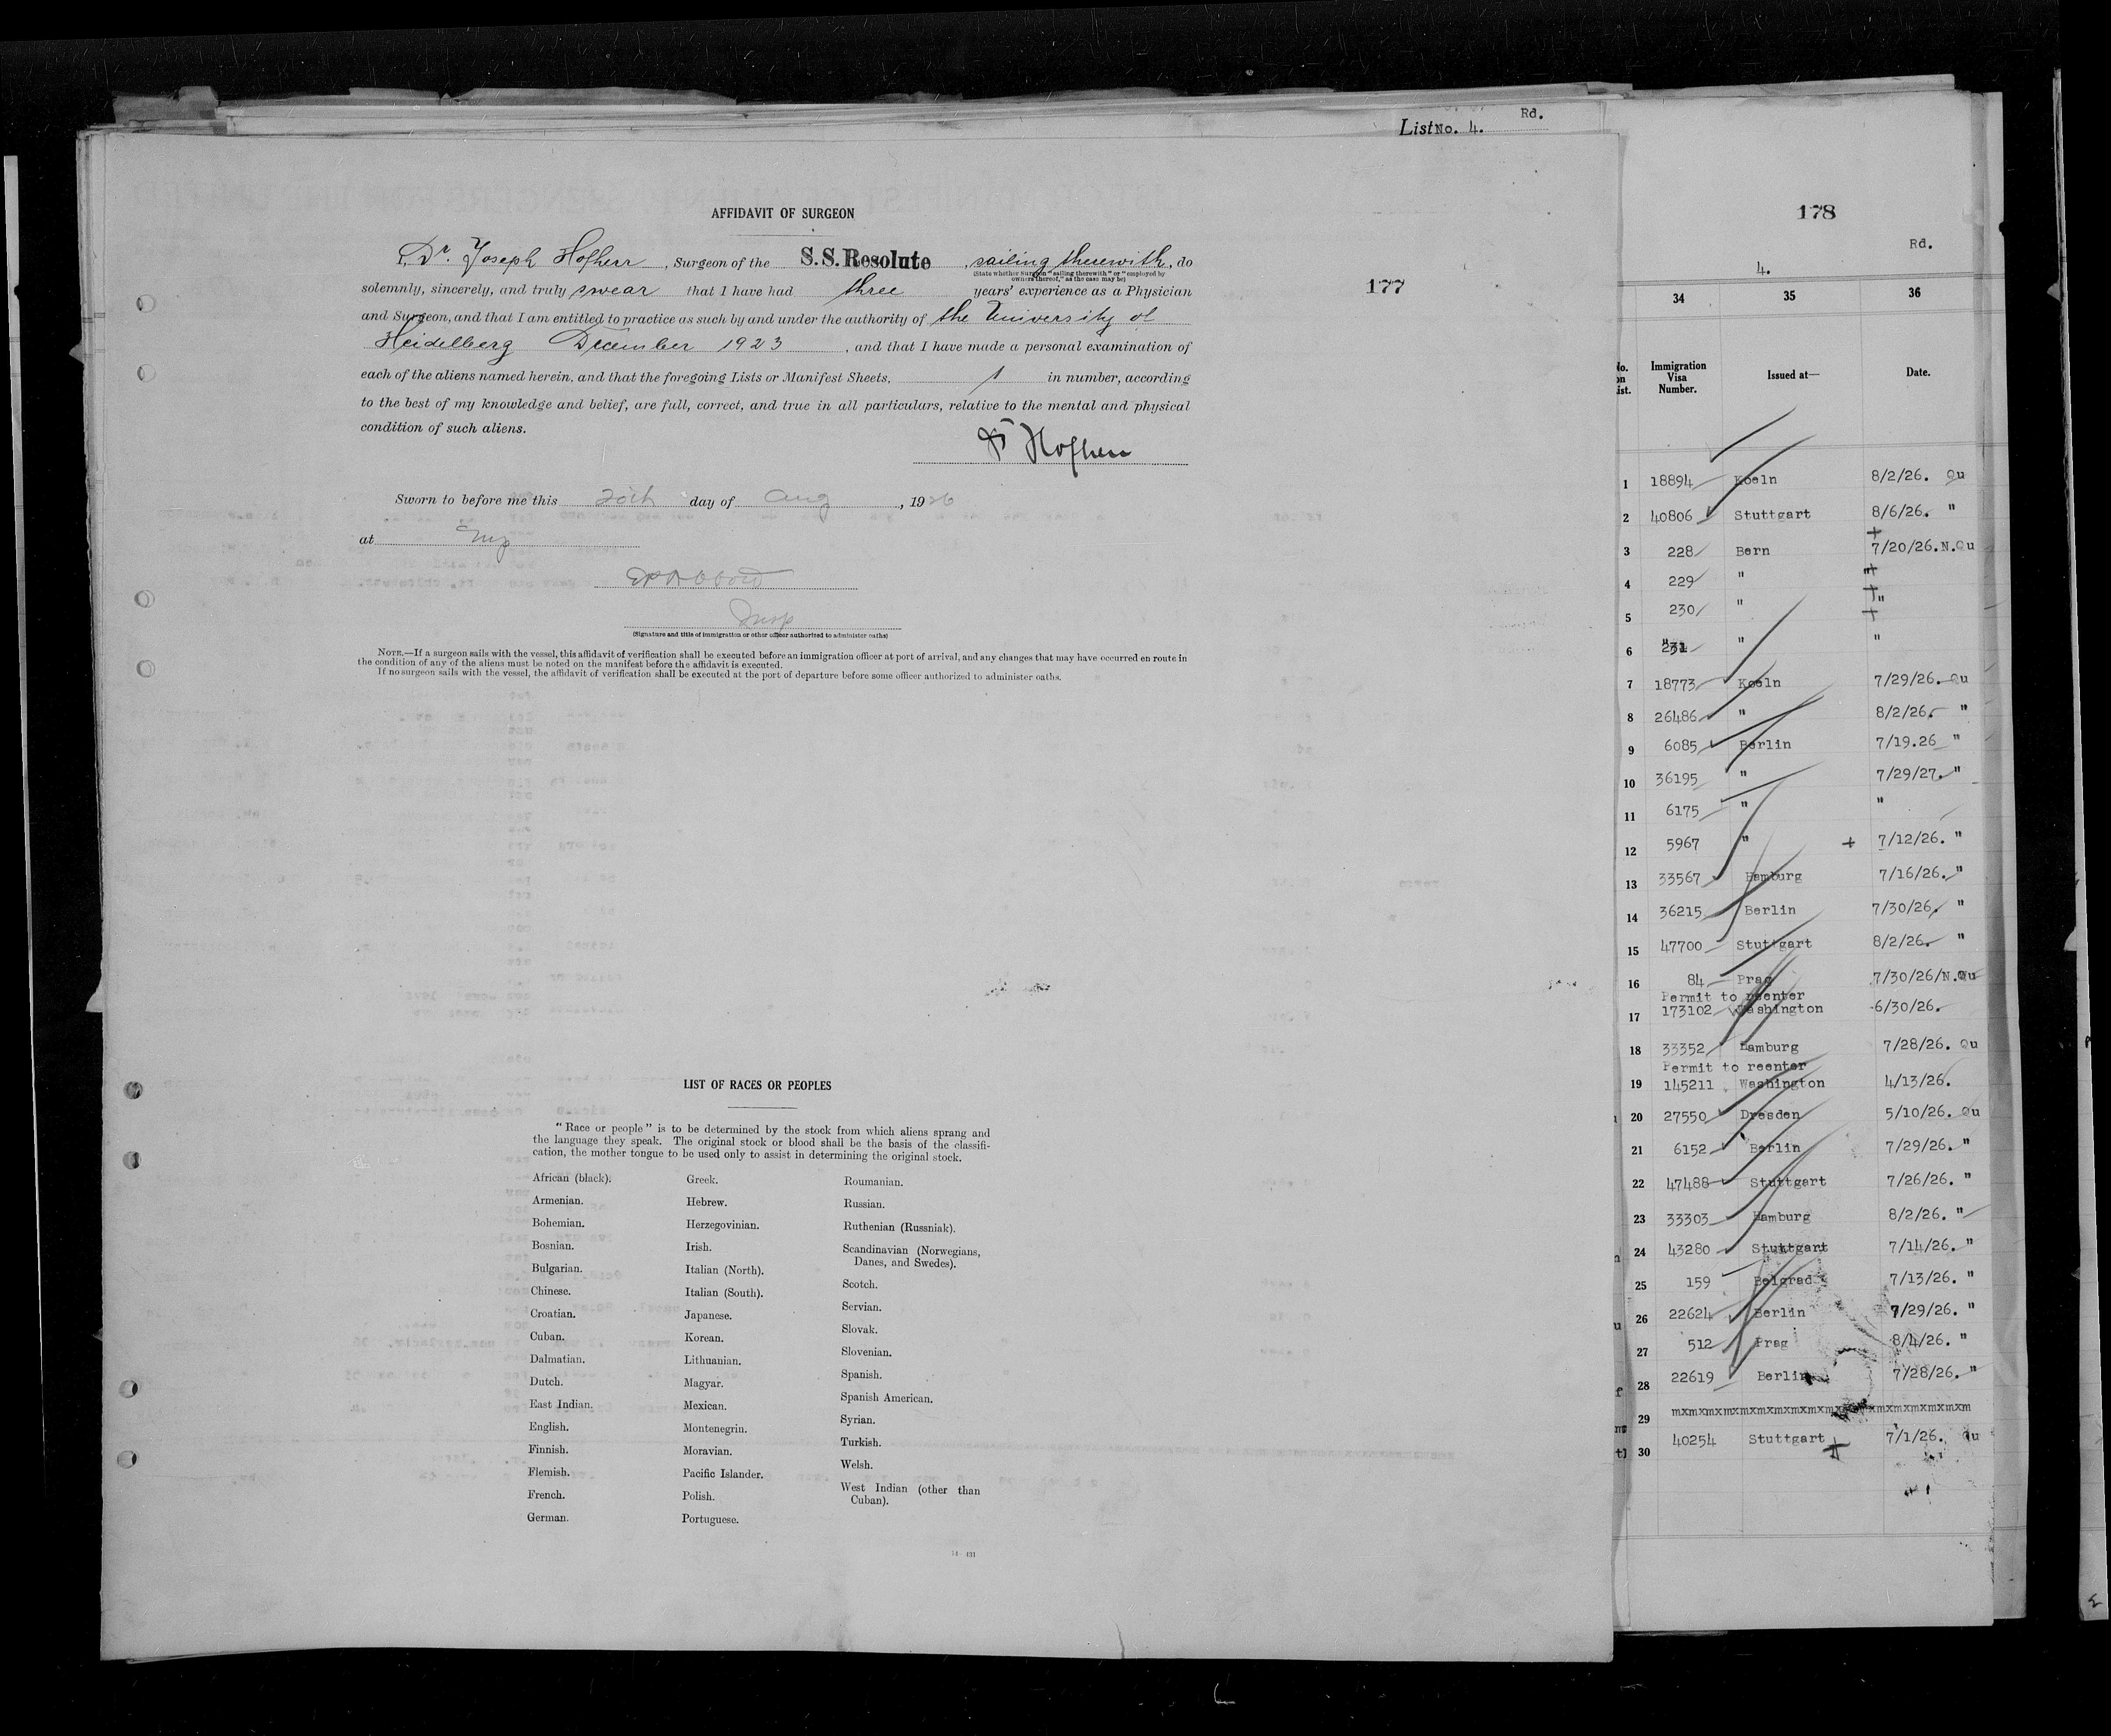 List No. 4.
Rd.
AFFIDAVIT OF SURGEON
I, Dr. Joseph Hofherr, Surgeon of the S.S. Resolute, sailing therewith, do
(State whether Surgeon "sailing therewith" or "employed by
owners thereof," as the case may be)
solemnly, sincerely, and truly swear that I have had three years' experience as a Physician
and Surgeon, and that I am entitled to practice as such by and under the authority of the University of
Heidelberg December 1923, and that I have made a personal examination of
each of the aliens named herein, and that the foregoing Lists or Manifest Sheets, 1 in number, according
to the best of my knowledge and belief, are full, correct, and true in all particulars, relative to the mental and physical
condition of such aliens.
Dr Hofherr
177
Sworn to before me this 20th day of Aug, 1926
at
Insp
(Signature and title of immigration or other officer authorized to administer oaths)
NOTE.—If a surgeon sails with the vessel, this affidavit of verification shall be executed before an immigration officer at port of arrival, and any changes that may have occurred en route in
the condition of any of the aliens must be noted on the manifest before the affidavit is executed.
If no surgeon sails with the vessel, the affidavit of verification shall be executed at the port of departure before some officer authorized to administer oaths.
LIST OF RACES OR PEOPLES
"Race or people" is to be determined by the stock from which aliens sprang and
the language they speak. The original stock or blood shall be the basis of the classifi-
cation, the mother tongue to be used only to assist in determining the original stock.
African (black).
Armenian.
Bohemian.
Bosnian.
Bulgarian.
Chinese.
Croatian.
Cuban.
Dalmatian.
Dutch.
East Indian.
English.
Finnish.
Flemish.
French.
German.
Greek.
Hebrew.
Herzegovinian.
Irish.
Italian (North).
Italian (South).
Japanese.
Korean.
Lithuanian.
Magyar.
Mexican.
Montenegrin.
Moravian.
Pacific Islander.
Polish.
Portuguese.
Roumanian.
Russian.
Ruthenian (Russniak).
Scandinavian (Norwegians,
Danes, and Swedes).
Scotch.
Servian.
Slovak.
Slovenian.
Spanish.
Spanish American.
Syrian.
Turkish.
Welsh.
West Indian (other than
Cuban).
178
Rd.
4.
34 35 36
No.
on
list.
Immigration
Visa
Number.
Issued at—
Date.
1 18894 Koeln 8/2/26. Qu
2 40806 Stuttgart 8/6/26. "
3 228 Bern 7/20/26. N.Qu
4 229 " "
5 230 " "
6 231 " "
7 18773 Koeln 7/29/26. Qu
8 26486 " 8/2/26. "
9 6085 Berlin 7/19.26 "
10 36195 " 7/29/27. "
11 6175 " "
12 5967 " + 7/12/26. "
13 33567 Hamburg 7/16/26. "
14 36215 Berlin 7/30/26. "
15 47700 Stuttgart 8/2/26. "
16 84 Prag 7/30/26/N.Qu
Permit to reenter
17 173102 Washington 6/30/26.
18 33352 Hamburg 7/28/26. Qu
Permit to reenter
19 145211 Washington 4/13/26.
20 27550 Dresden 5/10/26. Qu
21 6152 Berlin 7/29/26. "
22 47488 Stuttgart 7/26/26. "
23 33303 Hamburg 8/2/26. "
24 43280 Stuttgart 7/14/26. "
25 159 Belgrad 7/13/26. "
26 22624 Berlin 7/29/26. "
27 512 Prag 8/4/26. "
28 22619 Berlin 7/28/26. "
29 mxmxmxmxmxmxmxmxmxmxmxmxmxmxmxmxmxm
30 40254 Stuttgart 7/1/26. Qu